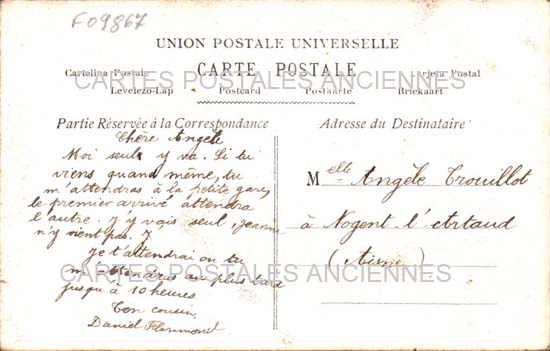 F09867
UNION POSTALE UNIVERSELLE
CARTE POSTALE
Cartolina Postale
Levelezo-Lap Postcard Postkarte Briekaart
CARTES POSTALES ANCIENNES
Partie Réservée à la Correspondance
Chère Angèle
Moi seul y va. Si tu
viens quand même, tu
m'attendras à la petite gare,
le premier arrivé attendra
l'autre. J'y vais seul, Jeanne
n'y vient pas.
Je t'attendrai ou tu
m'attendras au plus tard
jusqu'à 10 heures
Ton cousin
Daniel
Adresse du Destinataire
Melle Angèle Trouillot
à Nogent l'Artaud
(Aisne)
CARTES POSTALES ANCIENNES